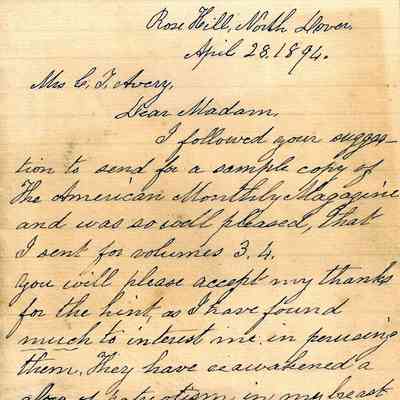 Rose Hill, North Dover,
April 28, 1894.
Mrs C. T. Avery,
Dear Madam,
I followed your sugges-
tion to send for a sample copy of
The American Monthly Magazine
and was so well pleased, that
I sent for volumes 3. 4.
You will please accept my thanks
for the hint, as I have found
much to interest me in perusing
them. They have reawakened a
glow of patriotism in my breast